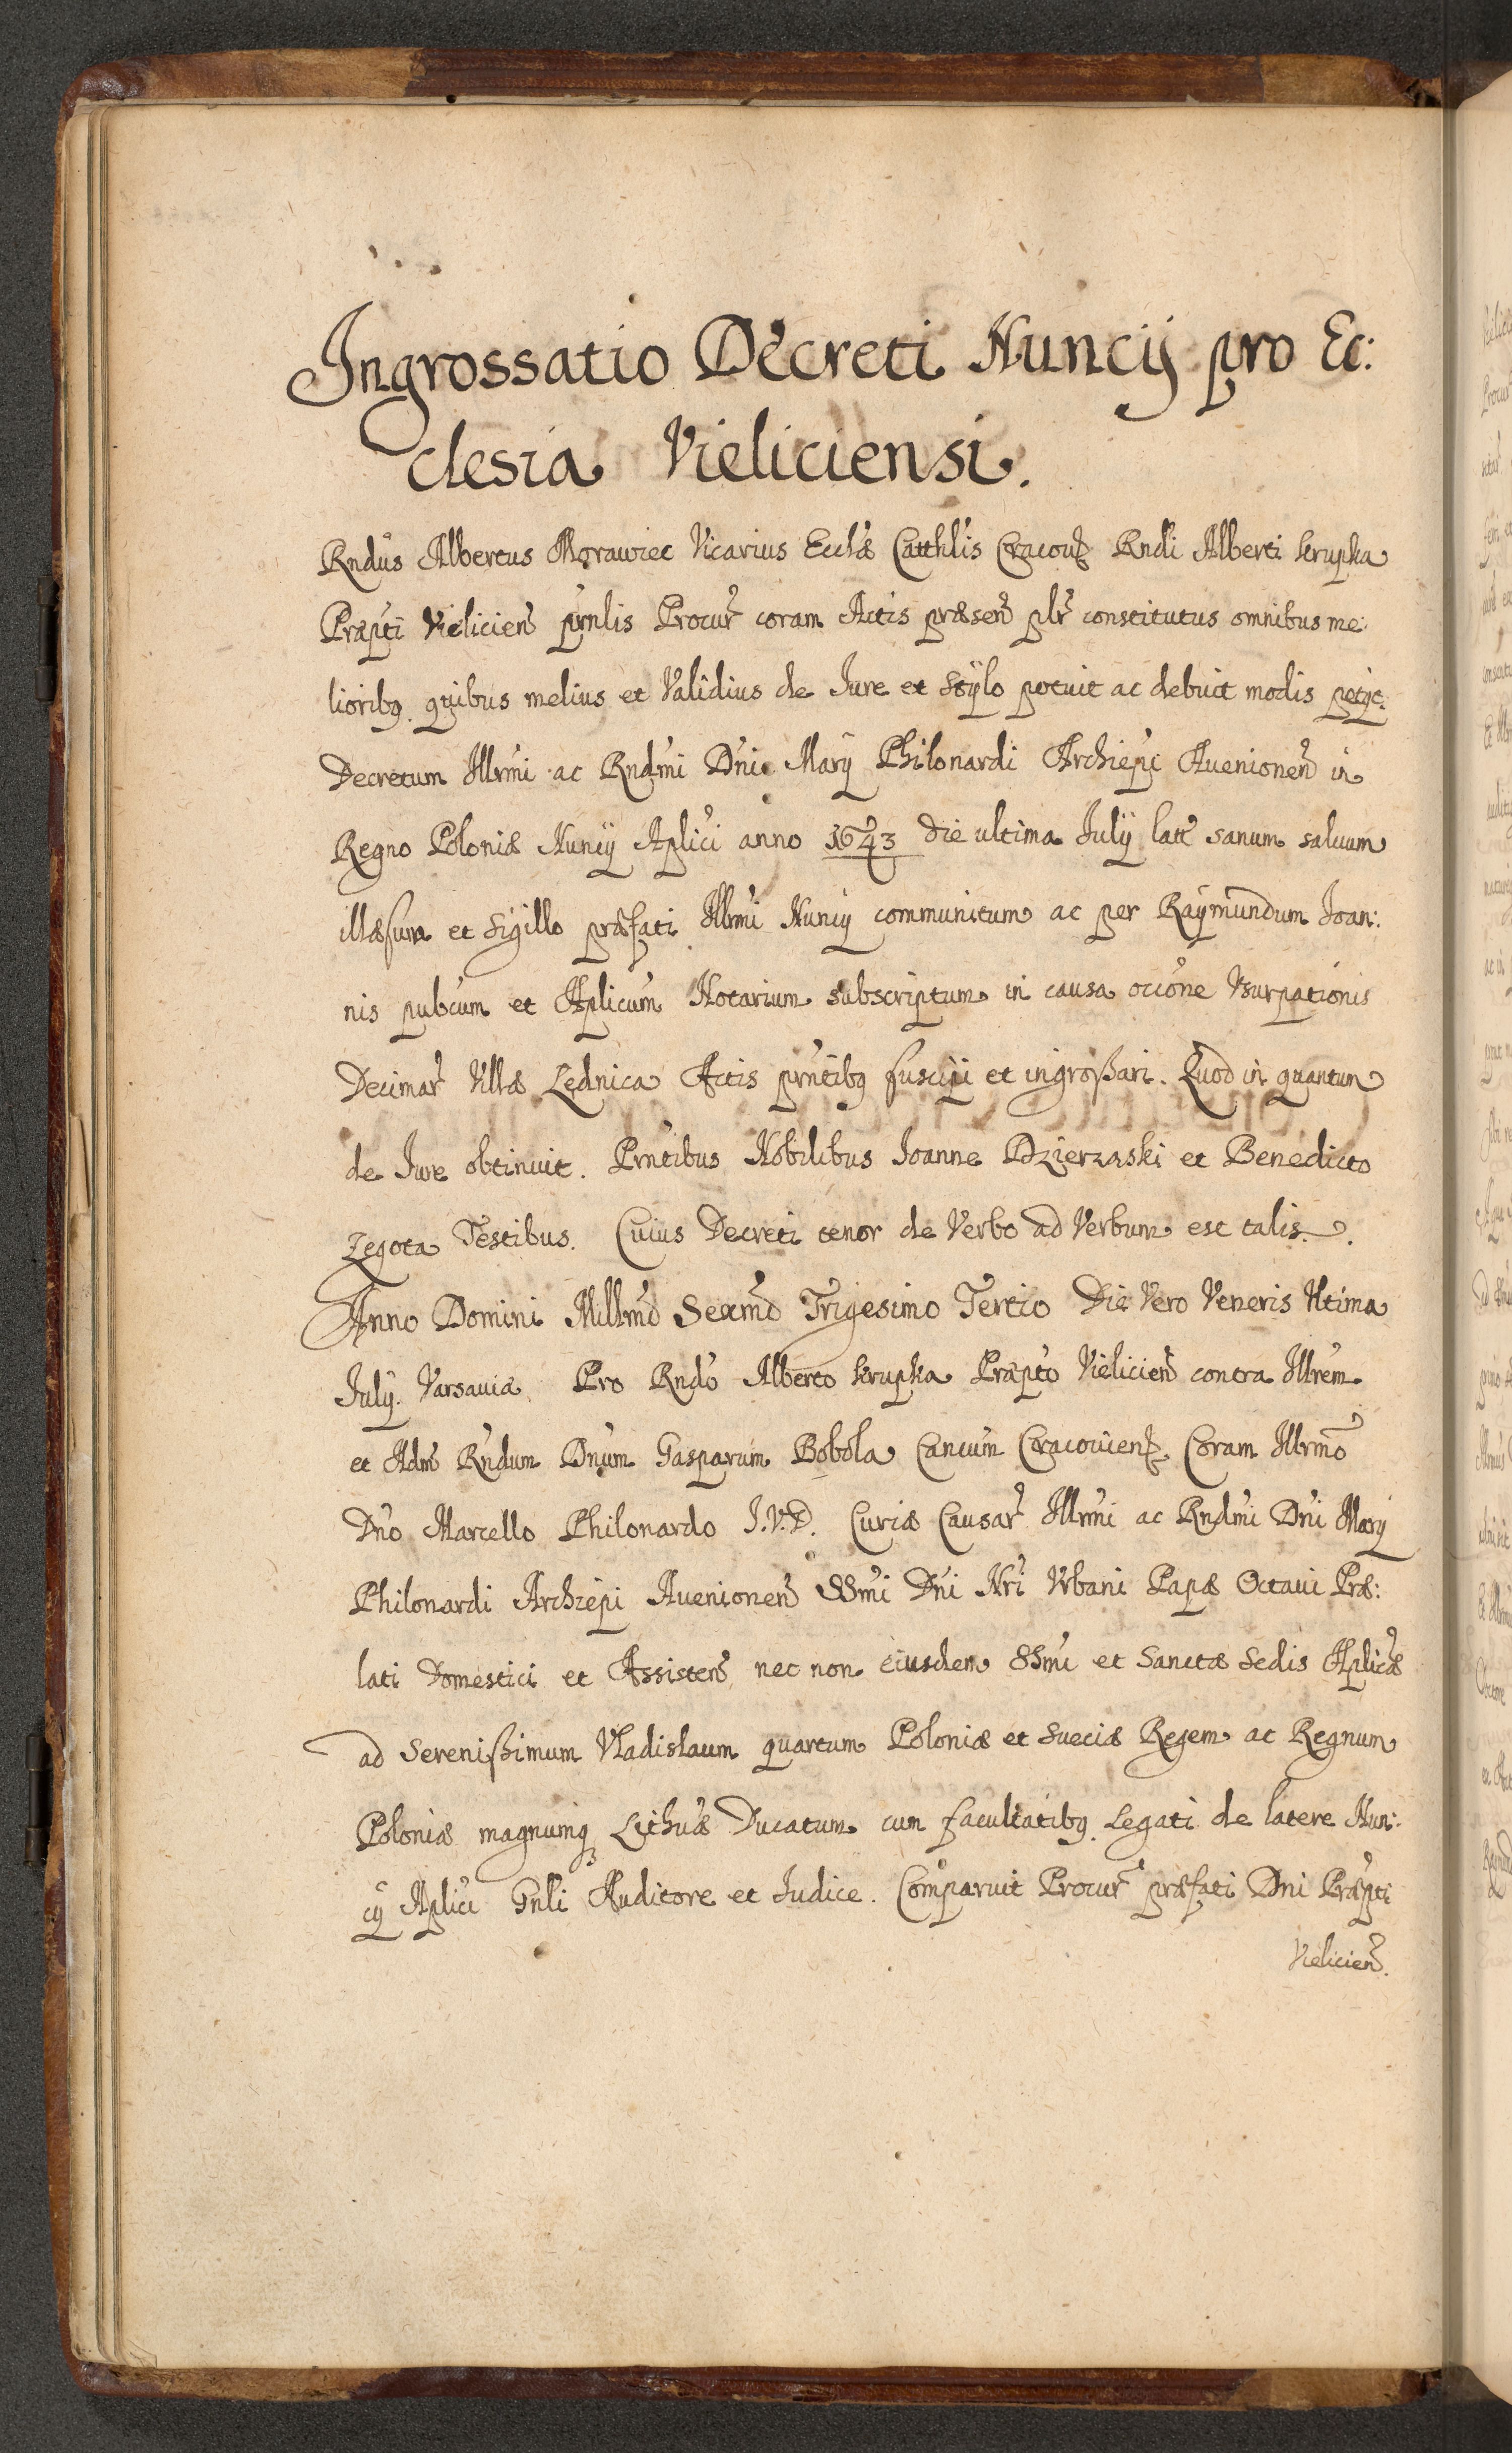 Ingrossatio Decreti Nuncij pro Ec:
clesia Vieliciensi.
Rndus Albertus Morawiec Vicarius Ecclae Catthlis Cracouen Rndi Alberti Krupka
Praepti Vieliciens prnlis Procur coram Actis praesen plr constitutus omnibus me:
lioribq quibus melius et Validius de Jure et Stylo potuit ac debuit modis petijt
Decretum Illrmi ac Rndmi Dni Marij Philonardi Archiepi Auenionen in
Regno Poloniae Nuncij Aplici anno 1643 die ultima Julij latt sanum saluum
illaesum et Sigillo praefati Illrmi Nuncij communitum ac per Raymundum Joan:
nis pubcum et Aplicum Notarium subscriptum in causa occone Vsurpationis
Decimar Villae Lednica Actis prntibq suscipi et ingroßari. Quod in quantum
de Jure obtinuit. Prntibus Nobilibus Joanne Dzierzaski et Benedicto
Zegota Testibus. Cuius Decreti tenor de Verbo ad Verbum est talis.
Anno Domini Millmo Sexmo Trigesimo Tertio Die Vero Veneris Vltima
Julij. Varsauiae Pro Rndo Alberto Krupka Praepto Vielicien contra Illrem
et Adm Rndum Dnum Gasparum Bobola Cancum Cracouien. Coram Illrmo
Dno Marcello Philonardo J.V.D. Curiae Causar Illrmi ac Rndmi Dni Marij
Philonardi Archiepi Auenionen SSmi Dni Nri Vrbani Papae Octaui Prae:
lati Domestici et Assisten nec non eiusdem SSmi et Sanctae Sedis Aplicae
ad Serenißimum Vladislaum quartum Poloniae et Sueciae Regem ac Regnum
Poloniae magnumq Lithuae Ducatum cum facultatibq Legati de latere Nun:
cij Aplici Gnli Auditore et Judice. Comparuit Procur praefati Dni Praepti
Vielicien.